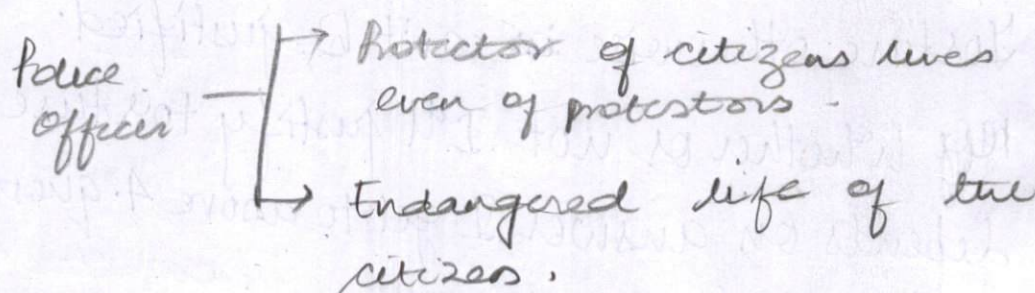 Police officer → Protector of citizens lives
even of protestors.
→ Endangered life of the
citizen.